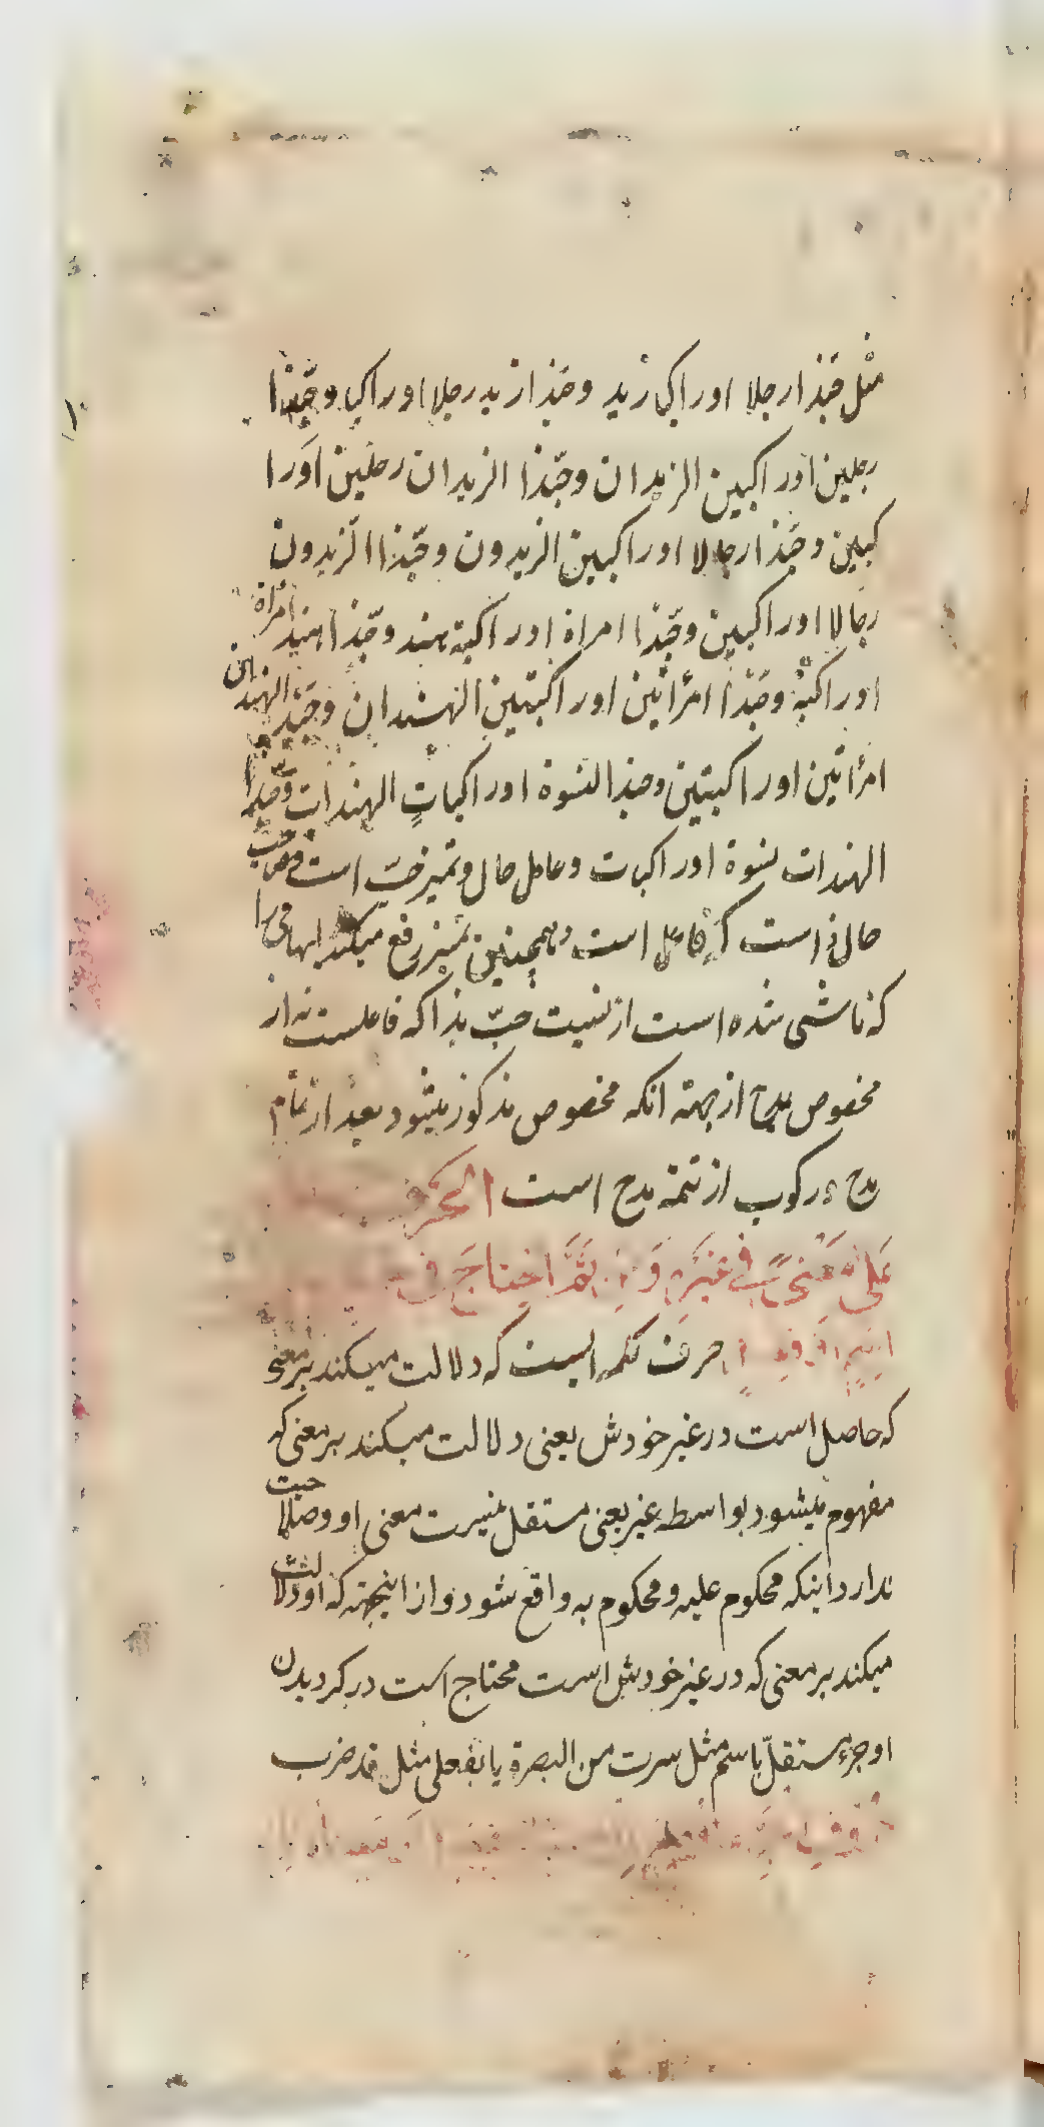 مثل حبّذا رجلا او راکبا زید وحبّذا زید رجلا او راکبا وحبّذا
رجلین او راکبین الزیدان وحبّذا الزیدان رجلین او را
کبین وحبّذا رجالا او راکبین الزیدون وحبّذا الزیدون
رجالا او راکبین وحبّذا امراة او راکبة هند وحبّذا هند امرأة
او راکبة وحبّذا امرأتین او راکبتین الهندان وحبّذا الهندان
امرأتین او راکبتین وحبذا النسوة او راکباتٍ الهندات وحبّذا
الهندات نسوة او راکبات وعامل حال وتمیز حبّ است وصاحب
حال ذا است که فاعل است وهمچنین تمیز رفع میکند ابهامی را
که ناشی شده است از نسبت حبّ بذا که فاعلست نه از
مخصوص بمدح از جهة انکه مخصوص مذکور میشود بعد از تمام
مدح و رکوب از تتمۀ مدح است الحرف
علی معنیً فی غیره و ثمّ احتاج فی
حرف کلمه ایست که دلالت میکند بر معنی
که حاصل است در غیر خودش یعنی دلالت میکند بر معنی که
مفهوم میشود بواسطه غیر یعنی مستقل نیست معنی او وصلاحیت
ندارد اینکه محکوم علیه و محکوم به واقع شود و از اینجهة که او دلالت
میکند بر معنی که در غیر خودش است محتاج است در کردیدن
او جزء مستقلّ باسم مثل سرت من البصرة یا بفعلی مثل قد ضرب